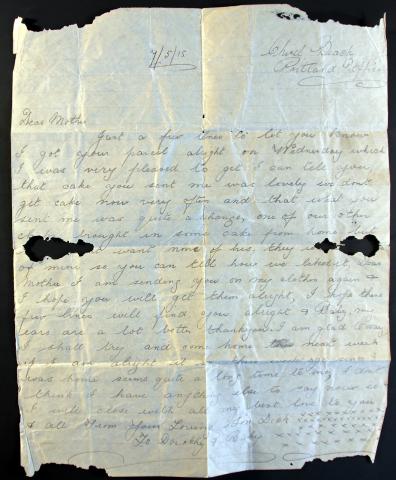 7/5/15
Portland
Dear Mother
Just a few lines to let you know
I got your parcel alright on Wednesday which
I was very pleased to get I can tell you
that cake you sent me was lovely we dont
get cake now very often and that what you
sent me was quite a change, one of our other
brought in some cake from home but
want none of his, they
of mine so you can tell how we liked it, Dear
Mother I am sending you on my clothes again &
I hope you will get them alright, I hope these
few lines will find you alright & Baby, my
ears are a lot better thankyou. I am glad to say
I shall try and come home next week
if I am alright it
was home seems quite a long time to me, I dont
think I have anything else to say now so
I will close with all my best love to you
& all From your Loving Son Dick
To Dorothy & Baby